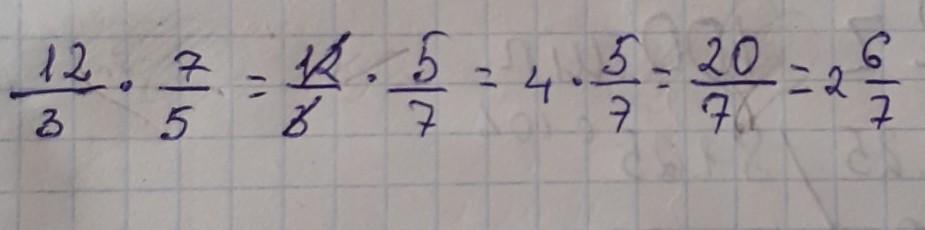 12/3 · 7/5 = 12/3 · 5/7 = 4 · 5/7 = 20/7 = 2 6/7